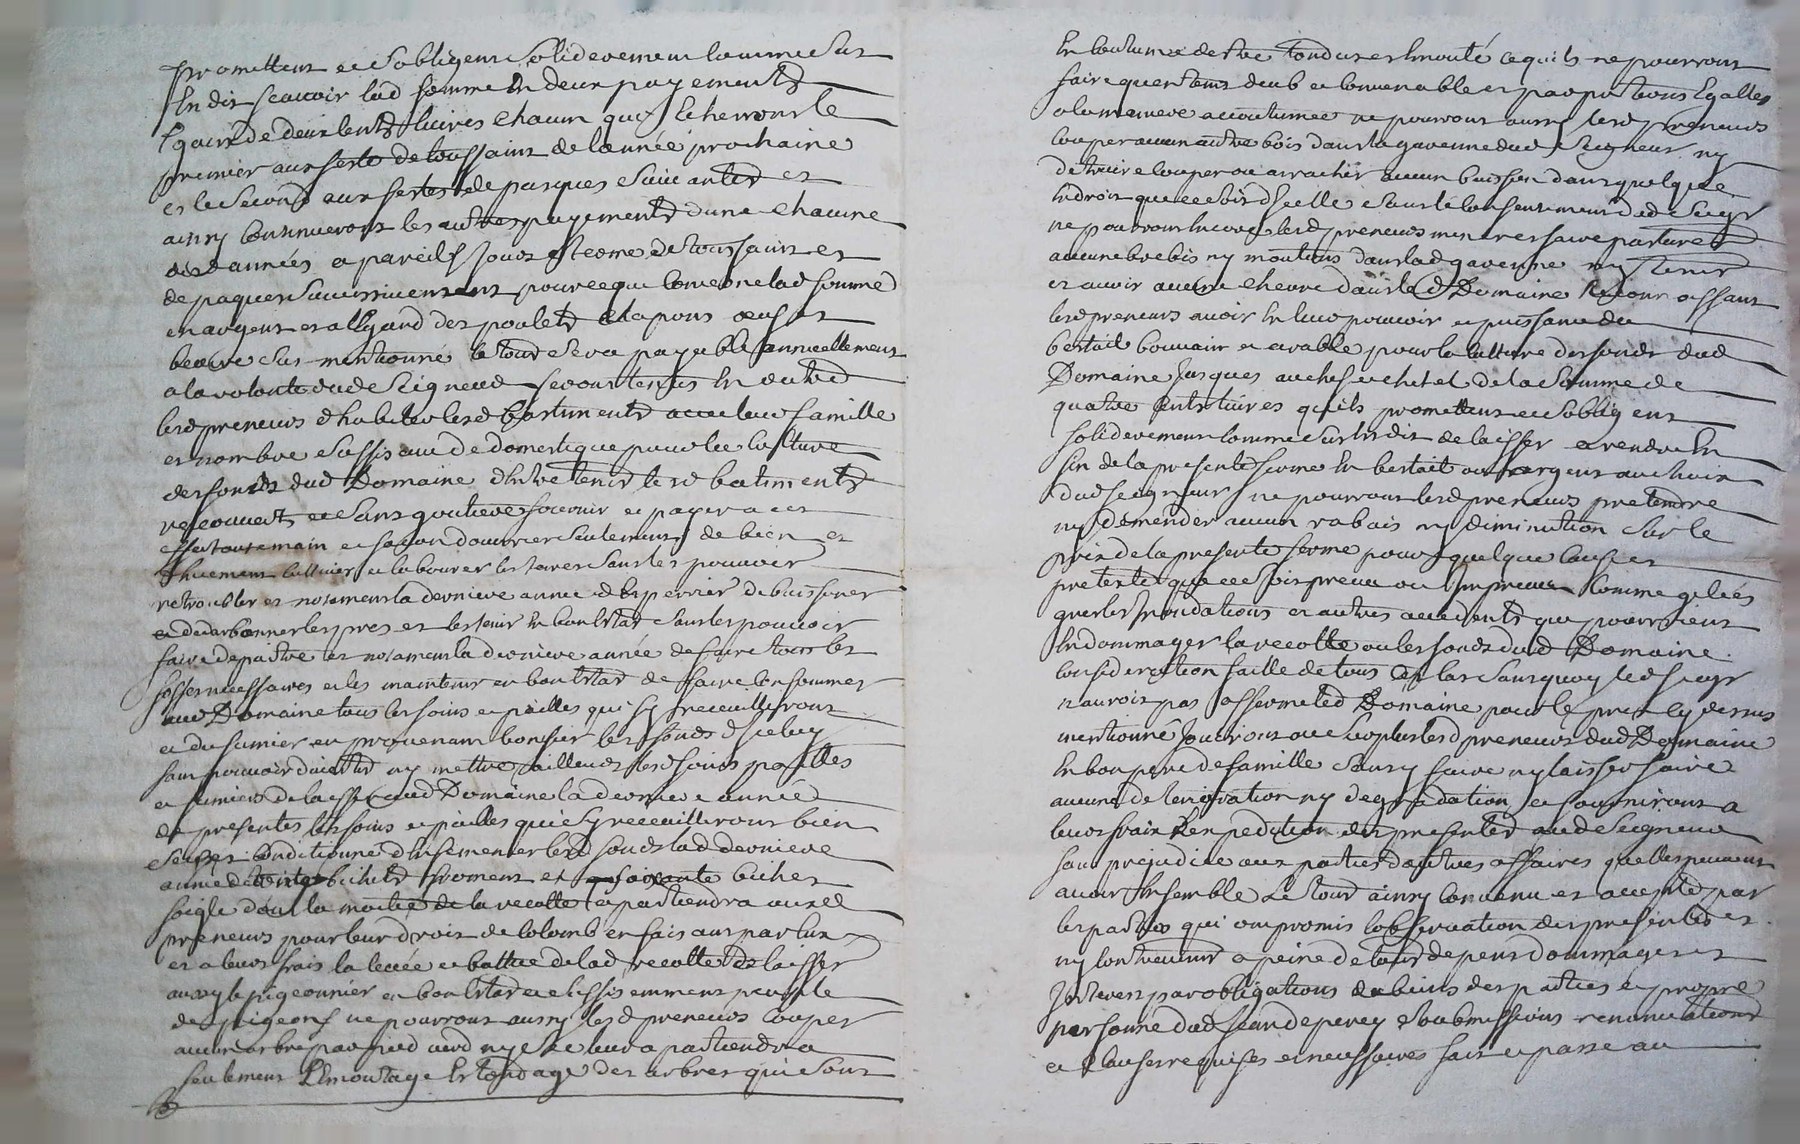 promettent et sobligent soliderement comme sus
Est dit scauoir lad somme En deux payements
Egaux de deux cents liures chacun qui Echerront le
premier aux festes de toussaint de lannée prochaine
et le second aux festes de pasques suiuantes et
ainsy continueront les autres payements dune chacune
desd années a pareils Jours et terme de toussaint et
de paques successiuement pour ce qui concerne lad somme
en argent et a legard des poulets chapons oeufs et
beurre sus mentionné le tout sera payable annuellement
a la volonte dud Seigneur seront tenus En outre
lesd preneurs dhabiter lesd bastiments auec leur famille
et nombre suffisant de domestique pour la culture
des fonds dud Domaine dEntretenir lesd batiments
recouuerts et sans goutiere fournir et payer a cet
effet toute main et façon douurier seulement de bien et
duement cultiuer et labourer les terres sans les pouuoir
retroubler et notament la derniere année desperrier debuissoner
et dedarbonner les pres et les tenir En bon Estat sans les pouuoir
faire depaitre et notament la derniere année de faire tous les
fosses necessaires et les maintenir en bon Estat de faire consommer
aud Domaine tous les foins et pailles qui sy receuilliront
et du fumier en prouenant bonifier les fonds diceluy
sans pouuoir diuertir ny mettre ailleurs lesd foins pailles
et fumiers de laisser aud Domaine la derniere année
des presentes les foins et pailles qui sy receuilliront bien
Secs et conditionné dEnsemencer lesd fonds lad derniere
année de trente bichets froment et soixante bichets
seigle dont la moitié de la recolte apartiendra auxd
preneurs pour leur droit de colomb En faisant par eux
et a leurs frais la leuée et battue de lad recolte de laisser
aussy le pigeonnier en bon Estat et suffisemment peuplé
de pigeons ne pourront aussy lesd preneurs couper
aucun arbre par pied verd ny sec leur apartiendra
seulement LEmontage Et tondage des arbres qui sont
En coutume destre tondus et Emonté ce qu'ils ne pourront
faire quen temps deub et conuenable et par portions Egalles
a la maniere accoutumée ne pourront aussy lesd preneurs
couper aucun autre bois dans la garenne dud Seigneur ny
detruire couper ou arracher aucun buisson dans quelque
Endroit que ce soit dicelle sans le consentement dud Seigr
ne pourront Encore lesd preneurs mener ny faire pasturer
aucune brebis ny moutons dans lad garenne ny tenir
et auoir aucune cheure dans led Domaine Reconnoissant
lesd preneurs auoir En leur pouuoir et puissance du
bestail bouuain et arable pour la culture des fonds dud
Domaine Jusques au chef et chetel de la somme de
quatre Cents liures qu'ils promettent et sobligent
solidairement comme sus Est dit de laisser et rendre En
fin de la presente ferme En bestail ou argent au choix
dud seigneur ne pourront lesd preneurs pretendre
ny demender aucun rabais ny diminution sur le
prix de la presente ferme pour quelque cause et
pretexte que ce soit preuu ou Impreuu comme gelées
gresles Inondations et autres accidents qui pourroient
Endommager la recolte ou les fonds dud Domaine
consideration faitte de tous ces cas sans quoy led seigr
nauroit pas affermé led Domaine pour le prix cy dessus
mentionné Jouiront au surplus lesd preneurs dud Domaine
En bon pere de famille sans y faire ny laisser faire
aucune deterioration ny degradation et fourniront a
leurs frais Expedition des presentes aud Seigneur
sans prejudice aux parties dautres affaires quelles peuuent
auoir Ensemble Le tout ainsy conuenu et accepté par
les parties qui ont promis lobseruation des presentes et
ny contreuenir a peine de tous depens dommages et
Interests par obligations de biens des parties et propre
personne dud Jean deperey soubmissions renonciations
et clauses requises et necessaires fait et passé au